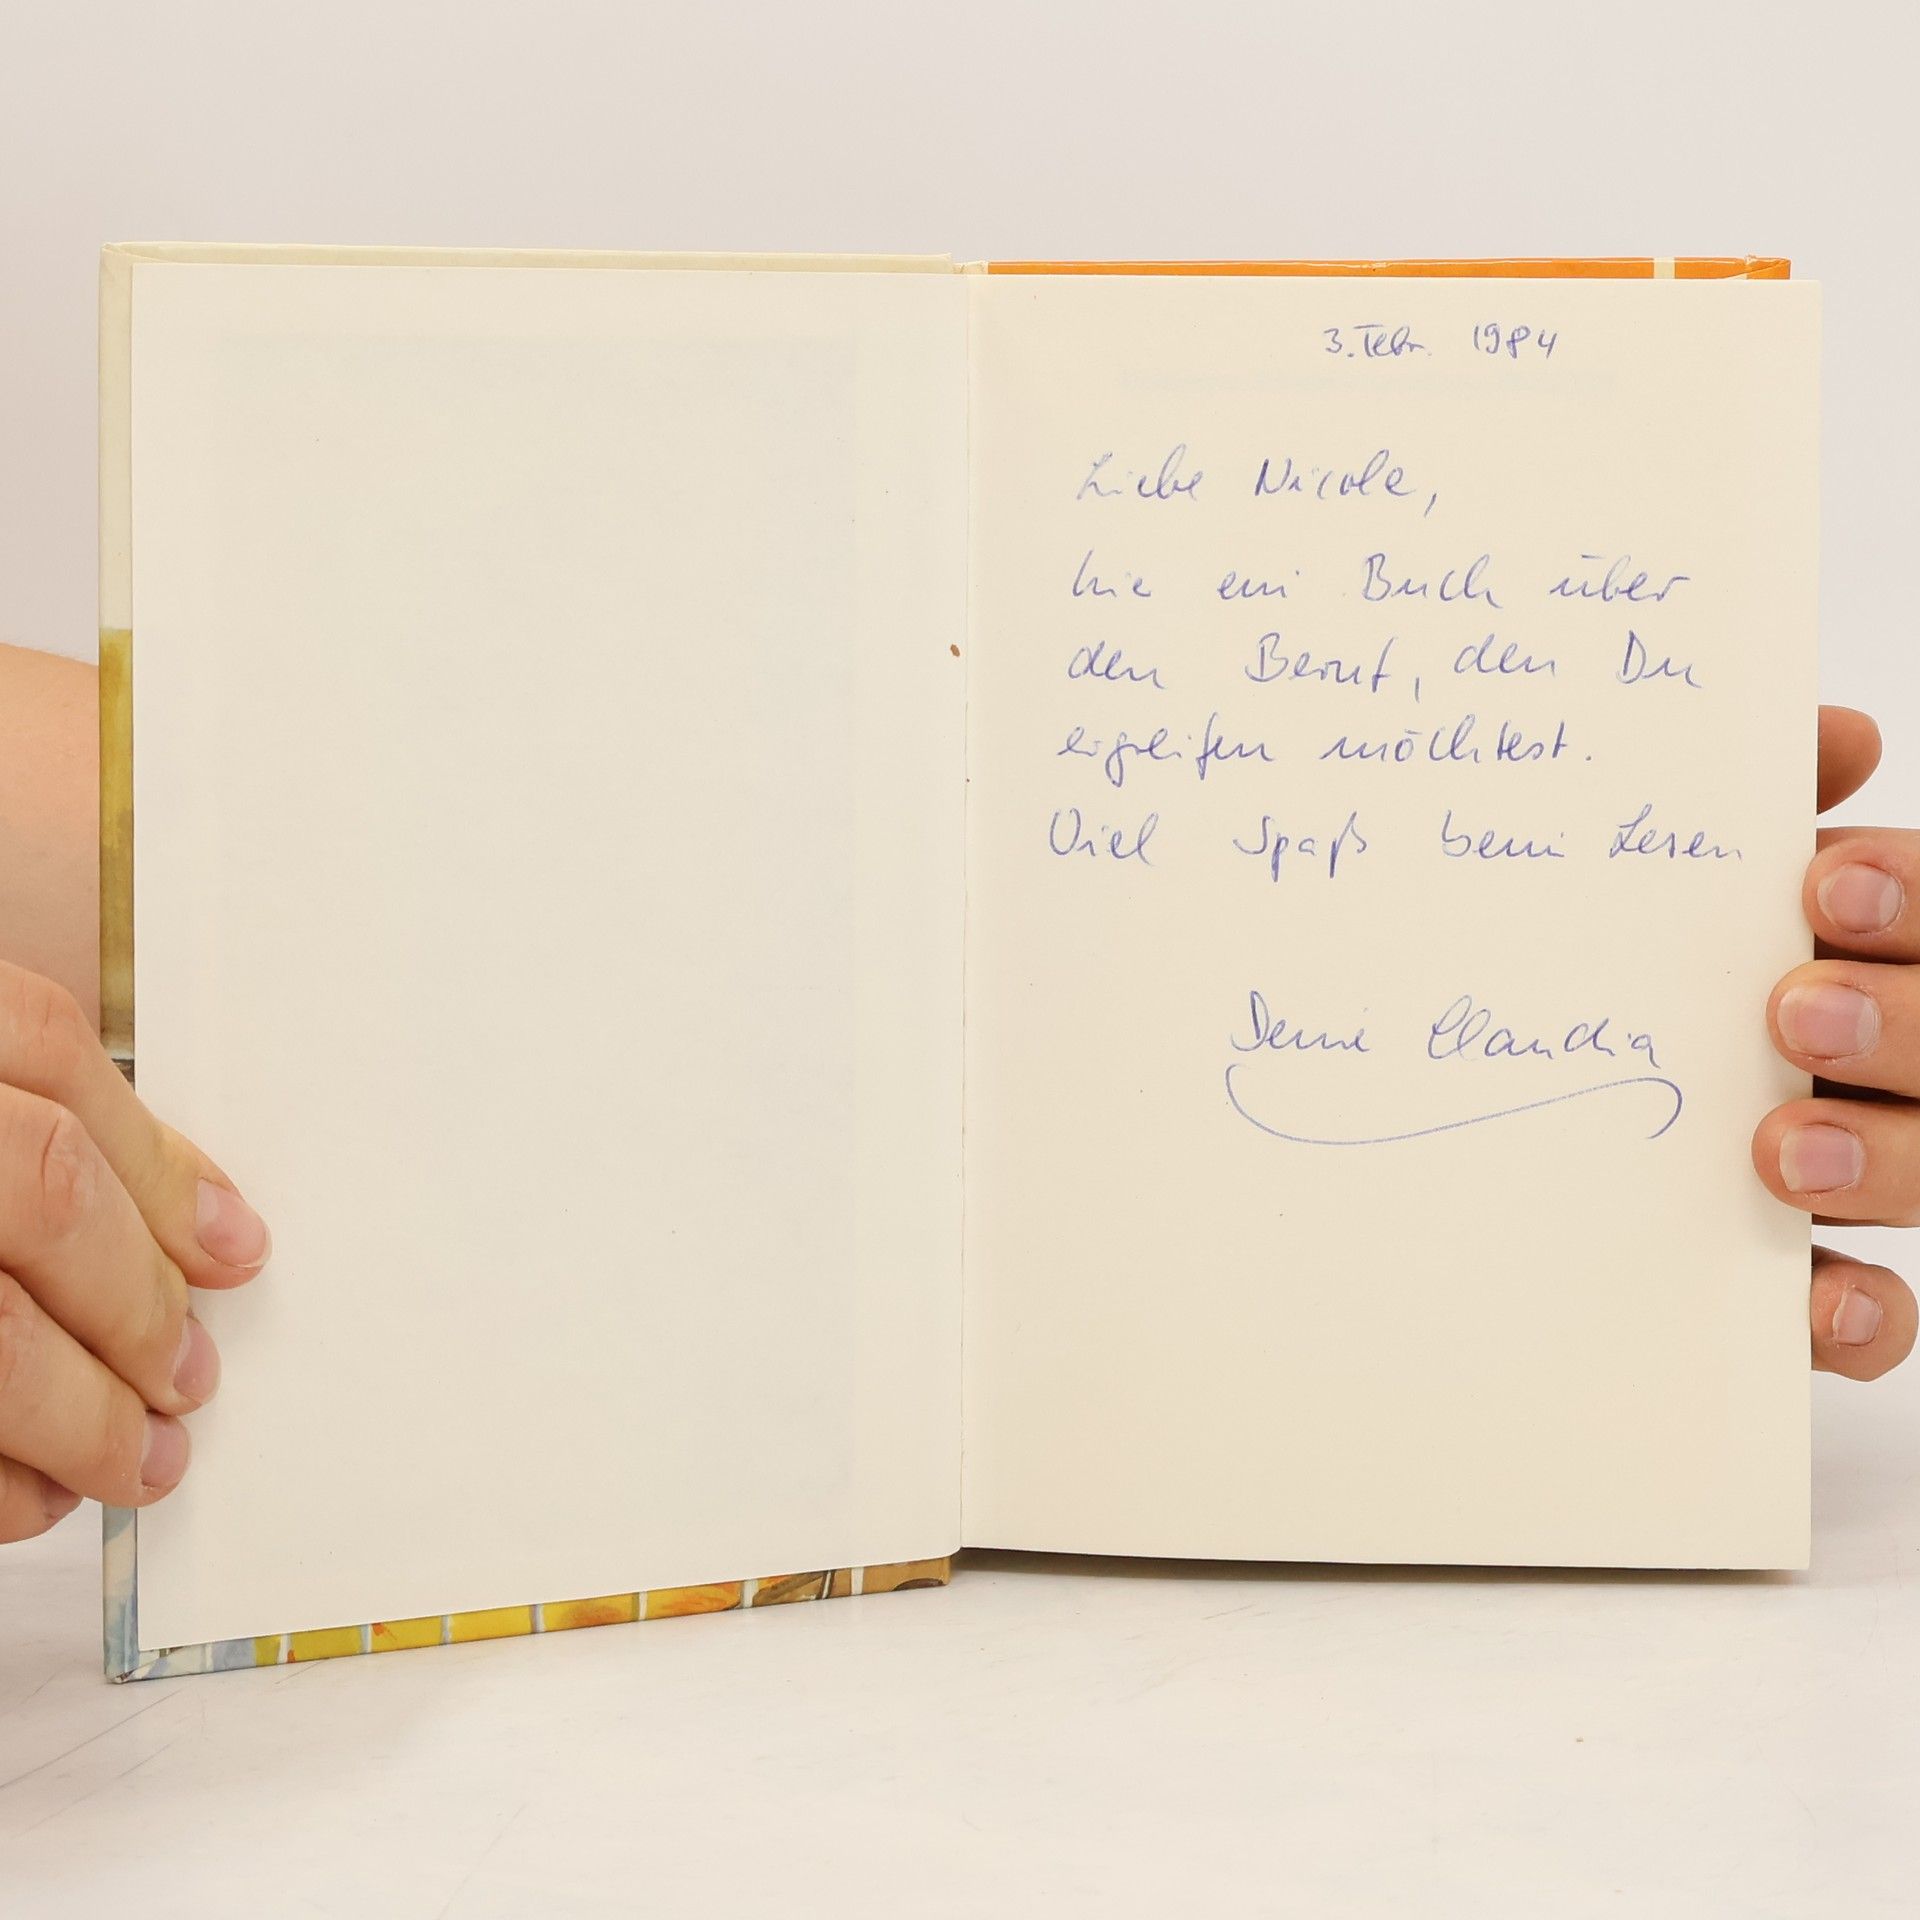 3. Febr. 1984
Liebe Nicole,
hie ein Buch über
den Beruf, den Du
ergreifen möchtest.
Viel Spaß beim Lesen
Deine Claudia